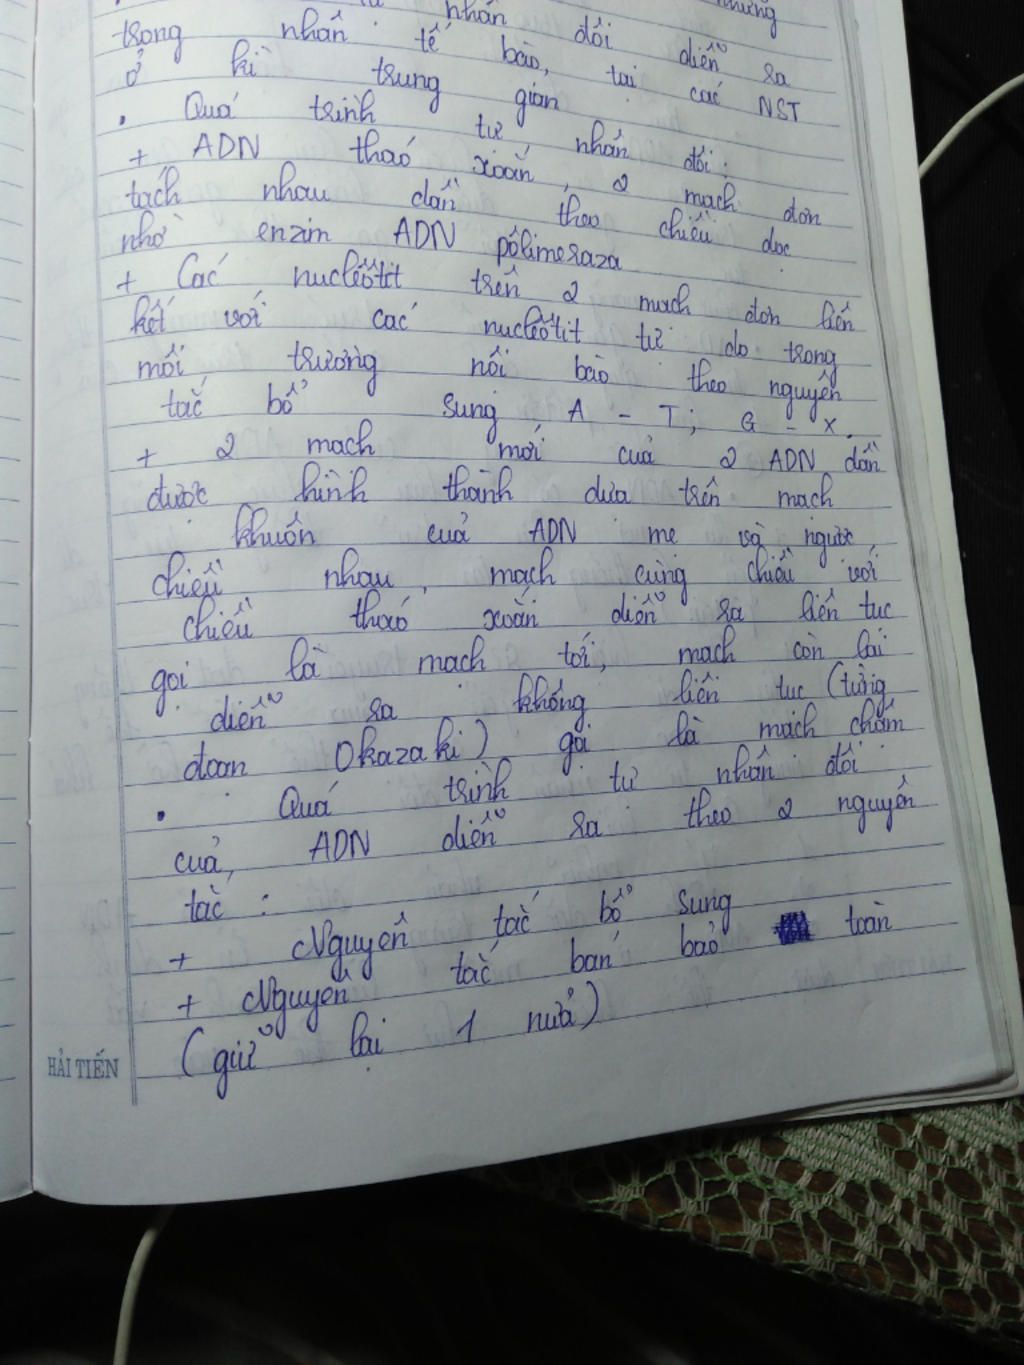 nhân đôi những
trong nhân tế bào, tại các NST diễn ra
ở kì trung gian
. Quá trình tự nhân đôi:
+ ADN tháo xoắn, 2 mạch đơn
tách nhau dần theo chiều dọc
nhờ enzim ADN pôlimeraza
+ Các nuclêôtit trên 2 mạch đơn liên
kết với các nuclêôtit tự do trong
môi trường nôi bào theo nguyên
tắc bổ sung A - T; G - X.
+ 2 mạch mới của 2 ADN dần
được hình thành dựa trên mạch
khuôn của ADN mẹ và ngược
chiều nhau, mạch cùng chiều với
chiều tháo xoắn diễn ra liên tục
gọi là mạch tới, mạch còn lại
diễn ra không liên tục (từng
đoạn Okazaki) gọi là mạch chậm
. Quá trình tự nhân đôi
của ADN diễn ra theo 2 nguyên
tắc :
+ Nguyên tắc bổ sung
+ Nguyên tắc bán bảo toàn
(giữ lại 1 nửa)
HẢI TIẾN